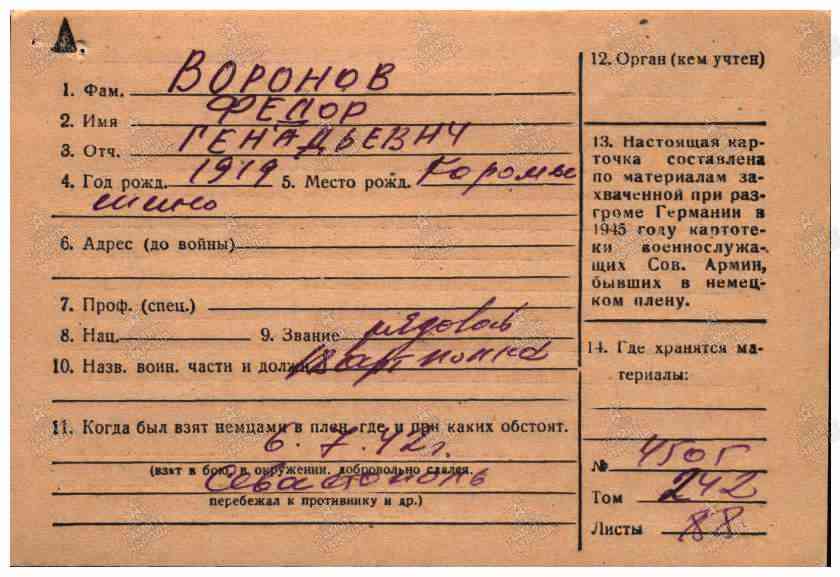 А.
1. Фам. ВОРОНОВ
2. Имя ФЕДОР
3. Отч. ГЕНАДЬЕВИЧ
4. Год рожд. 1919 5. Место рожд.
6. Адрес (до войны)
7. Проф. (спец.)
8. Нац. 9. Звание рядовой
10. Назв. воин. части и долж
11. Когда был взят немцами в плен, где и при каких обстоят.
6.7.42г.
(взят в бою, в окружении, добровольно сдался,
Севастополь
перебежал к противнику и др.)
12. Орган (кем учтен)
13. Настоящая кар-
точка составлена
по материалам за-
хваченной при раз-
громе Германии в
1945 году картоте-
ки военнослужа-
щих Сов. Армии,
бывших в немец-
ком плену.
14. Где хранятся ма-
териалы:
№
Том 242
Листы 88